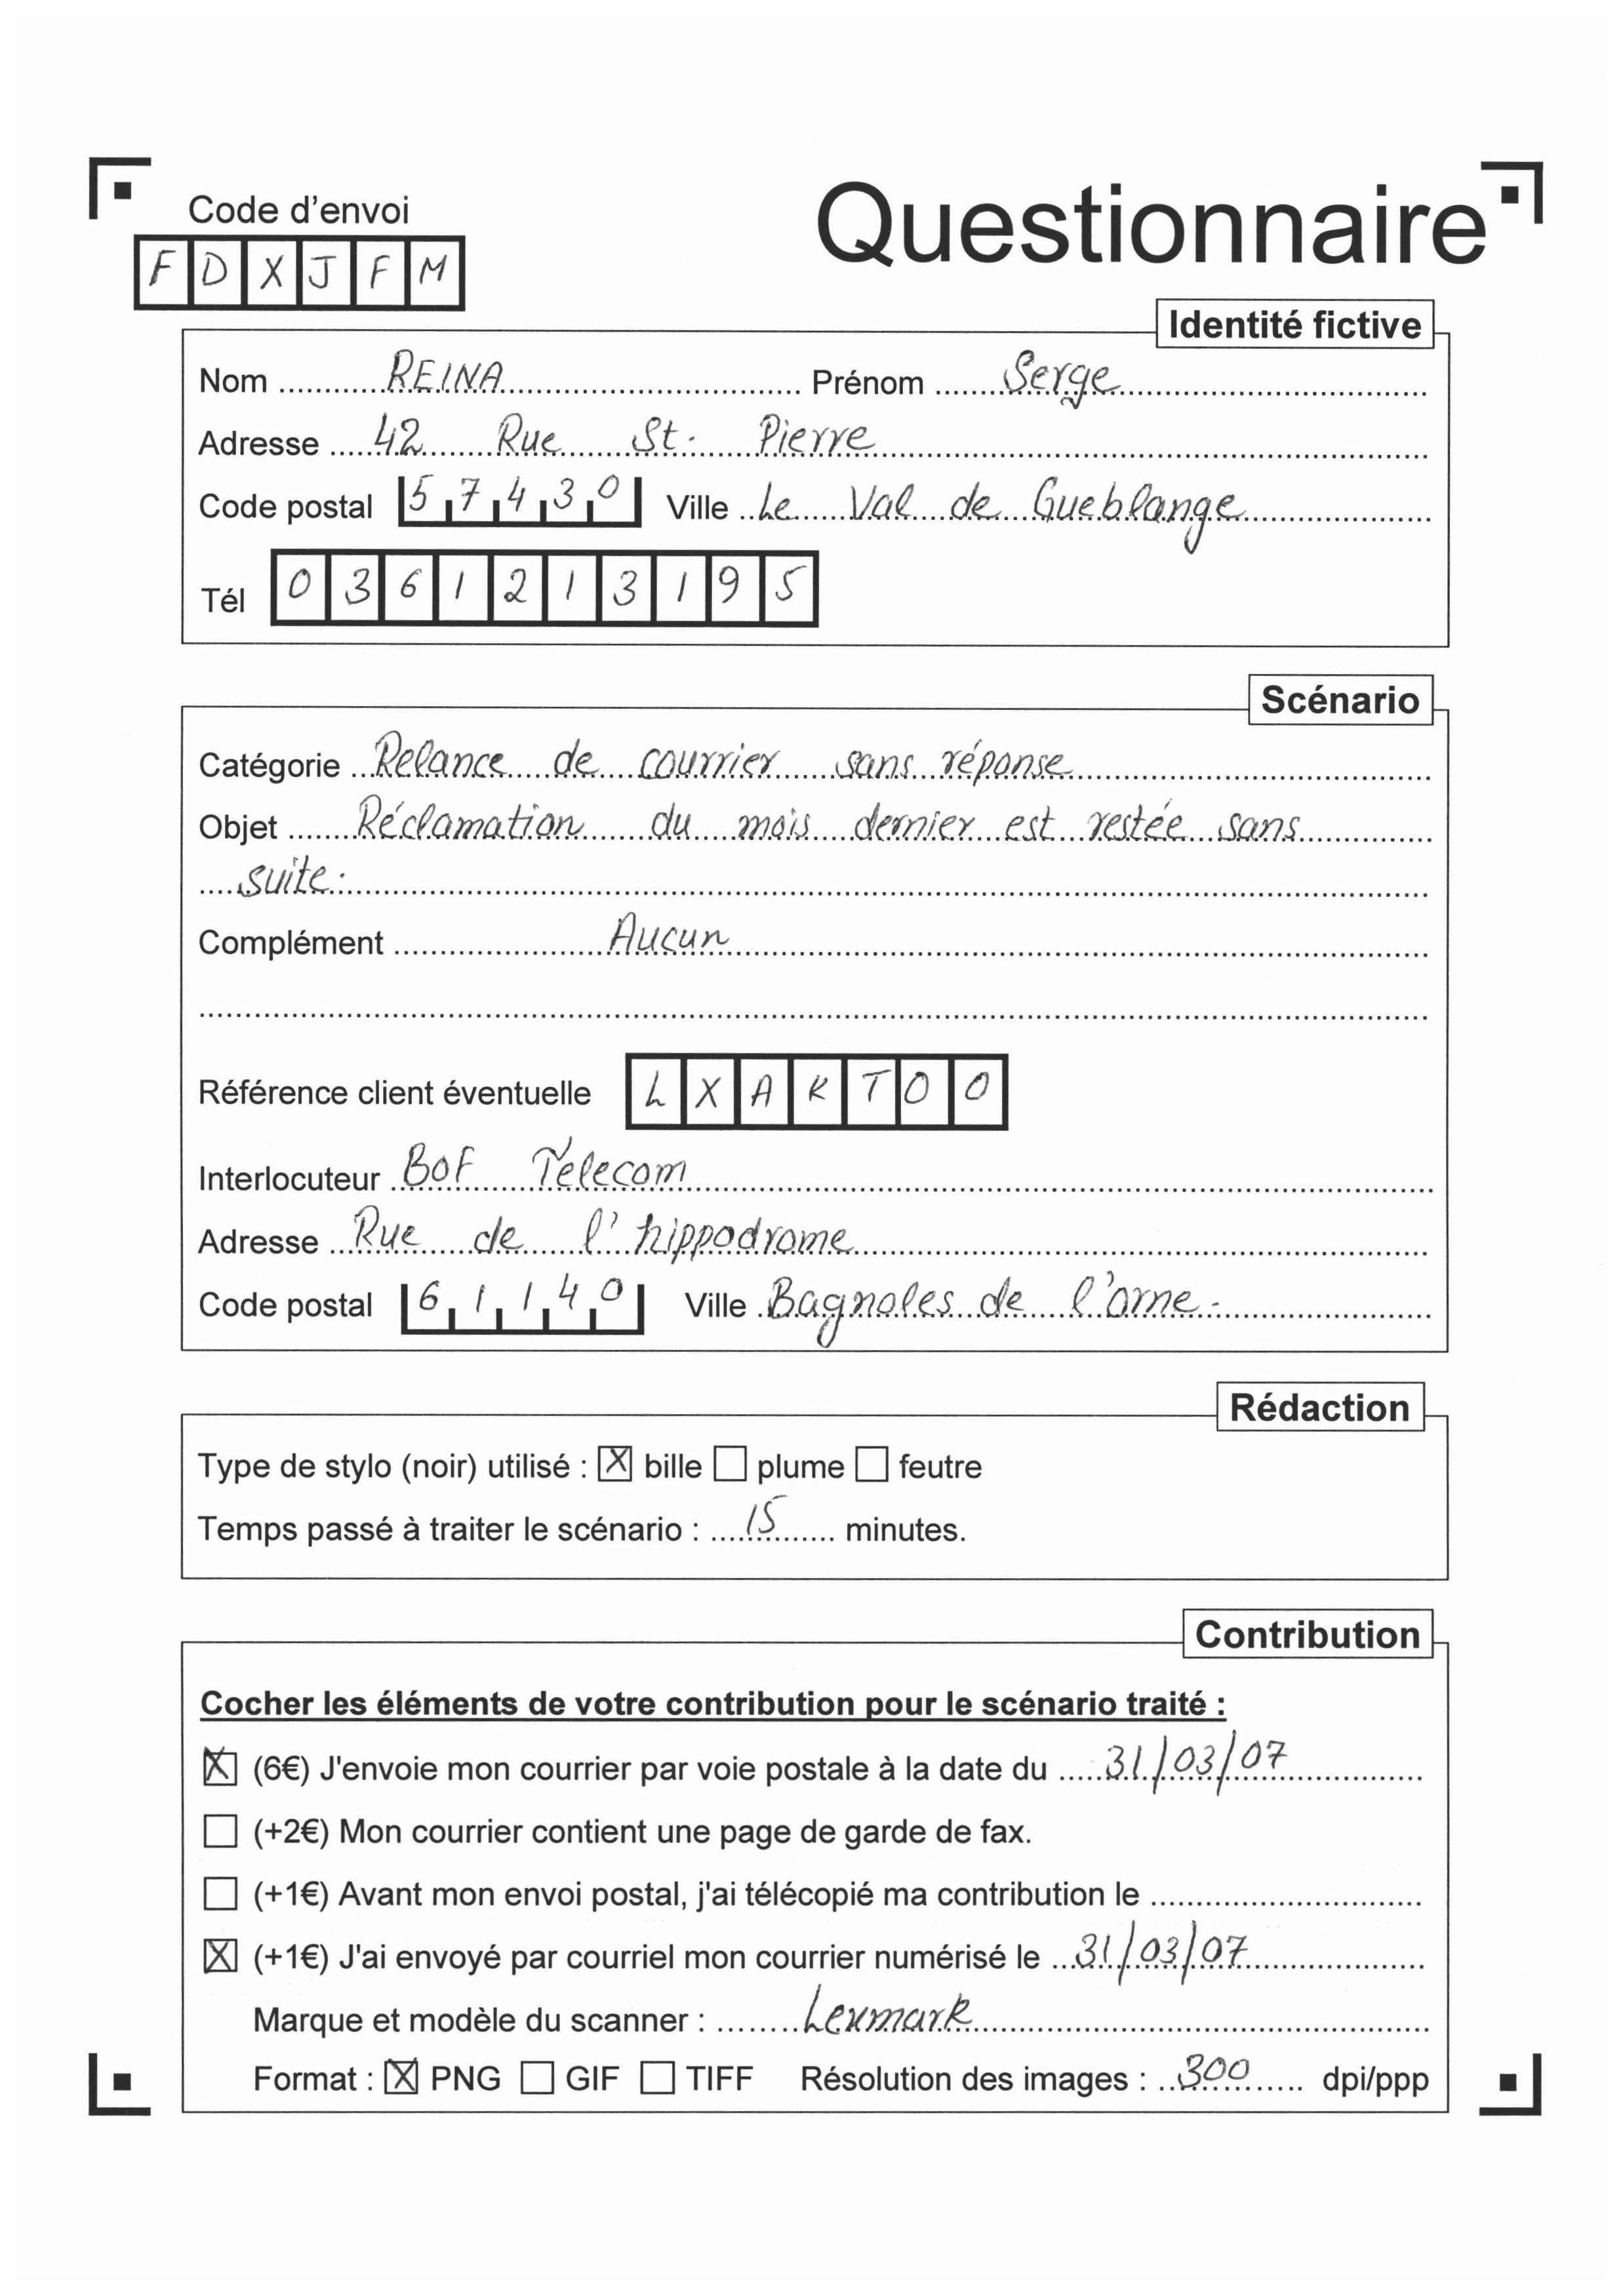 Code d'envoi
Questionnaire
F D X J F M
Identité fictive
Nom REINA Prénom Serge
Adresse 42 Rue St. Pierre
Code postal 57430 Ville Le Val de Gueblange
Tél 0361213195
Scénario
Catégorie Relance de courrier sans réponse
Objet Réclamation du mois dernier est restée sans
suite.
Complément Aucun
Référence client éventuelle L X A K T O O
Interlocuteur BOF Télécom
Adresse Rue de l'hippodrome
Code postal 61140 Ville Bagnoles de l'orne.
Rédaction
Type de stylo (noir) utilisé : ☒ bille ☐ plume ☐ feutre
Temps passé à traiter le scénario : 15 minutes.
Contribution
Cocher les éléments de votre contribution pour le scénario traité :
☒ (6€) J'envoie mon courrier par voie postale à la date du 31/03/07
☐ (+2€) Mon courrier contient une page de garde de fax.
☐ (+1€) Avant mon envoi postal, j'ai télécopié ma contribution le
☒ (+1€) J'ai envoyé par courriel mon courrier numérisé le 31/03/07
Marque et modèle du scanner : Lexmark
Format : ☒ PNG ☐ GIF ☐ TIFF Résolution des images : 300 dpi/ppp